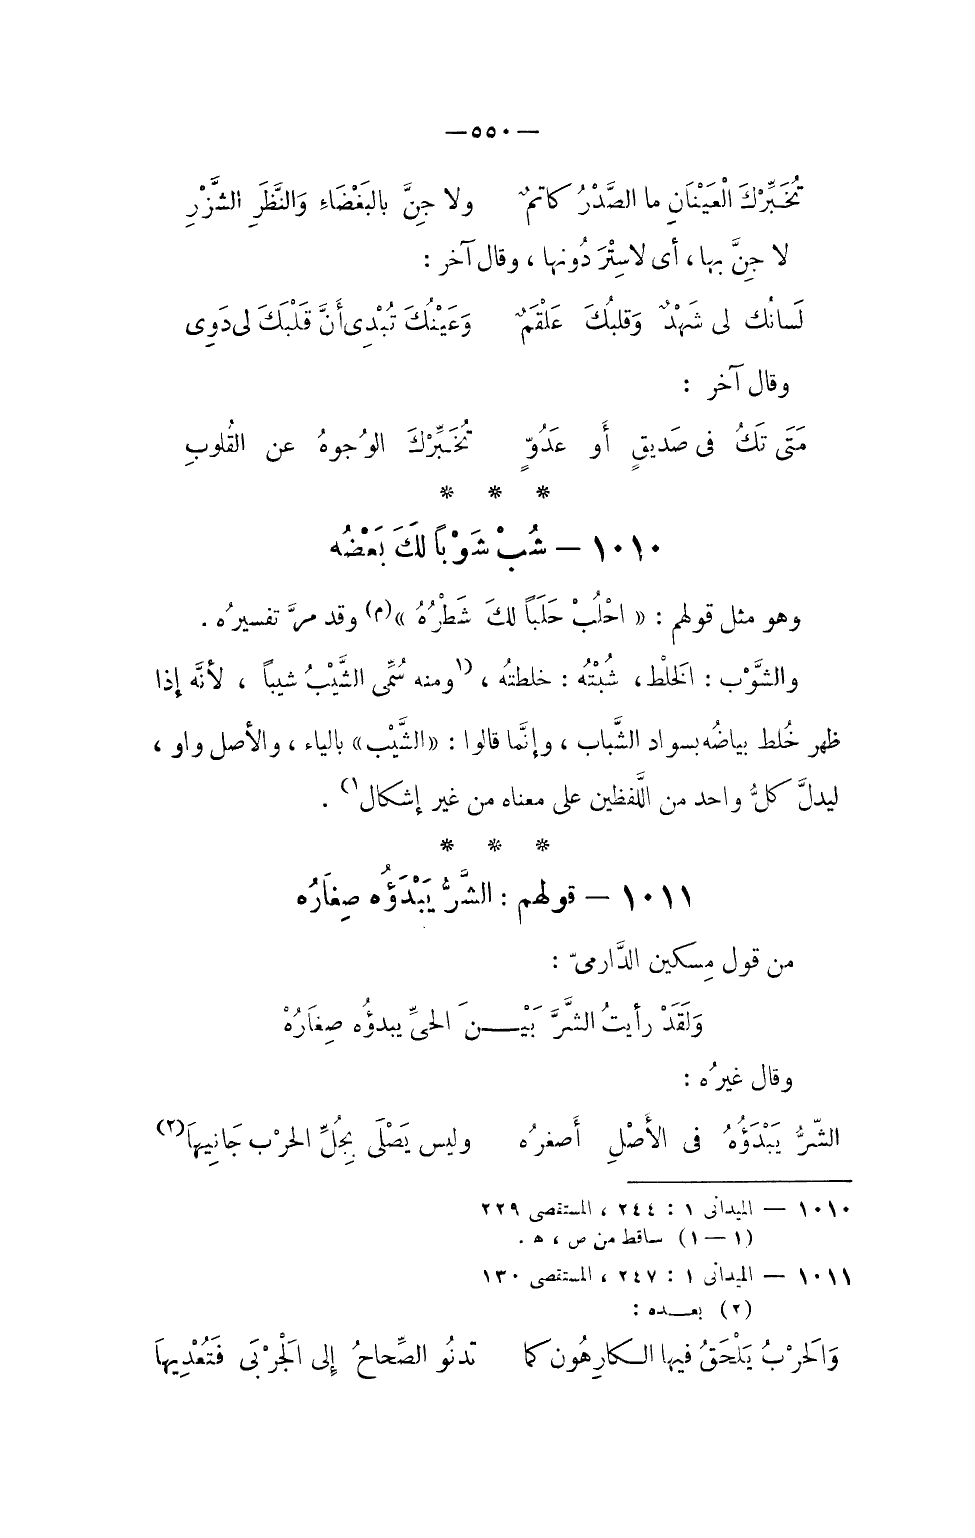 — ٥٥٠ —
تُخَبِّرْكَ الْعَيْنَانِ ما الصَّدْرُ كاتمٌ ولا جِنَّ بالبَغْضَاءِ وَالنَّظَرِ الشَّزْرِ
لا جِنَّ بها، أى لاسِتْرَ دُونها ، وقال آخر :
لَسانُك لى شَهْدٌ وَقلبُكَ عَلْقَمٌ وَعَيْنُكَ تُبْدِى أَنَّ قَلْبَكَ لى دَوِى
وقال آخر :
مَتَى تَكُ فى صَديقٍ أَو عَدُوٍّ تُخَبِّرْكَ الوُجوهُ عن القُلوبِ
* * *
١٠١٠ — شُبْ شَوْباً لَكَ بَعْضُه
وهو مثل قولهم : « احْلُبْ حَلَبَاً لكَ شَطْرُهُ »(م) وقد مرَّ تفسيرُه .
والشَّوْب : الخلْط، شُبْتُه : خلطتُه ، (١ومنه سُمِّى الشَّيْبُ شيباً ، لأنَّه إذا
ظهر خُلط بياضُه بسواد الشَّباب ، وإنَّما قالوا : «الشَّيْب» بالياء ، والأصل واو ،
ليدلَّ كلُّ واحد من اللَّفظين على معناه من غير إشكال١) .
* * *
١٠١١ — قولهم : الشَّرُّ يَبْدَؤُه صِغَارُه
من قول مِسكين الدَّارمىّ :
وَلَقَدْ رأيتُ الشَّرَّ بَيْـــنَ الحىِّ يبدؤُه صِغَارُهْ
وقال غيرُه :
الشّرُّ يَبْدَؤُهُ فى الأَصْلِ أَصغرُه وليس يَصْلَى بِجُلِّ الحرْب جَانِيهاَ(٢)
١٠١٠ — الميدانى ١ : ٢٤٤ ، المستقصى ٢٢٩
(١ — ١) ساقط من ص ، ه .
١٠١١ — الميدانى ١ : ٢٤٧ ، المستقصى ١٣٠
(٢) بعـــده :
وَالحرْبُ يَلْحَقُ فيها الكارِهُون كما تدنُو الصِّحاحُ إلى الجرْبَى فَتُعْدِيهاَ